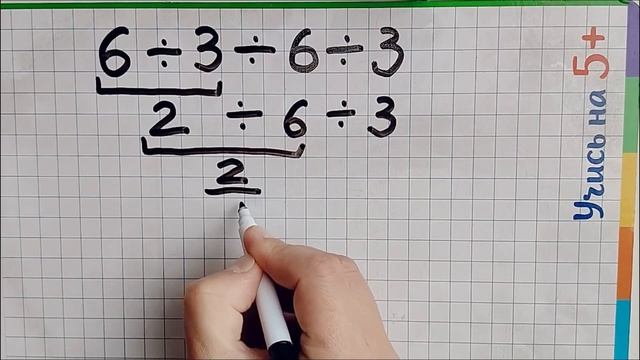 6 ÷ 3 ÷ 6 ÷ 3
2 ÷ 6 ÷ 3
2
Учись на 5+